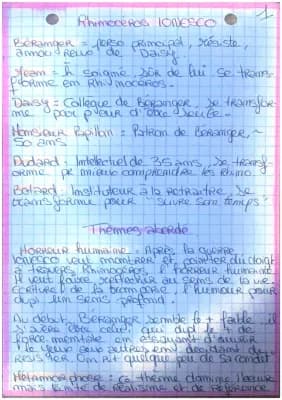 Rhinocéros IONESCO
1
Béranger = perso principal, résiste,
amoureux de Daisy.
Jean = H soigné, sûr de lui se trans-
forme en Rhinocéros.
Daisy = Collègue de Béranger, se transfor-
me pour peur d'être seule.
Monsieur Papillon = Patron de Béranger, ~
50 ans
Dudard = Intellectuel de 35 ans, se transf-
orme pr mieux comprendre les Rhino.
Botard = Instituteur à la retraitre, se
transforme pour "suivre son temps"
Thèmes abordé
Horreur humaine = Après la guerre,
Ionesco veut montrer et pointer du doigt
à travers Rhinocéros, l'horreur humaine.
Il veut faire réfléchir au sens de la vie.
Ecriture de la , l'humour pour
un sens profond.
Au début, Béranger semble le + faible il
s'avère être celui, qui le + de
force mentale en essayant d'ouvrir
les yeux aux autres, en décidant de
résister. On fait quelque peu de sa condit°.
Métamorphose = Ce thème domine l'oeuvre
mais limite de réalisme et de référence